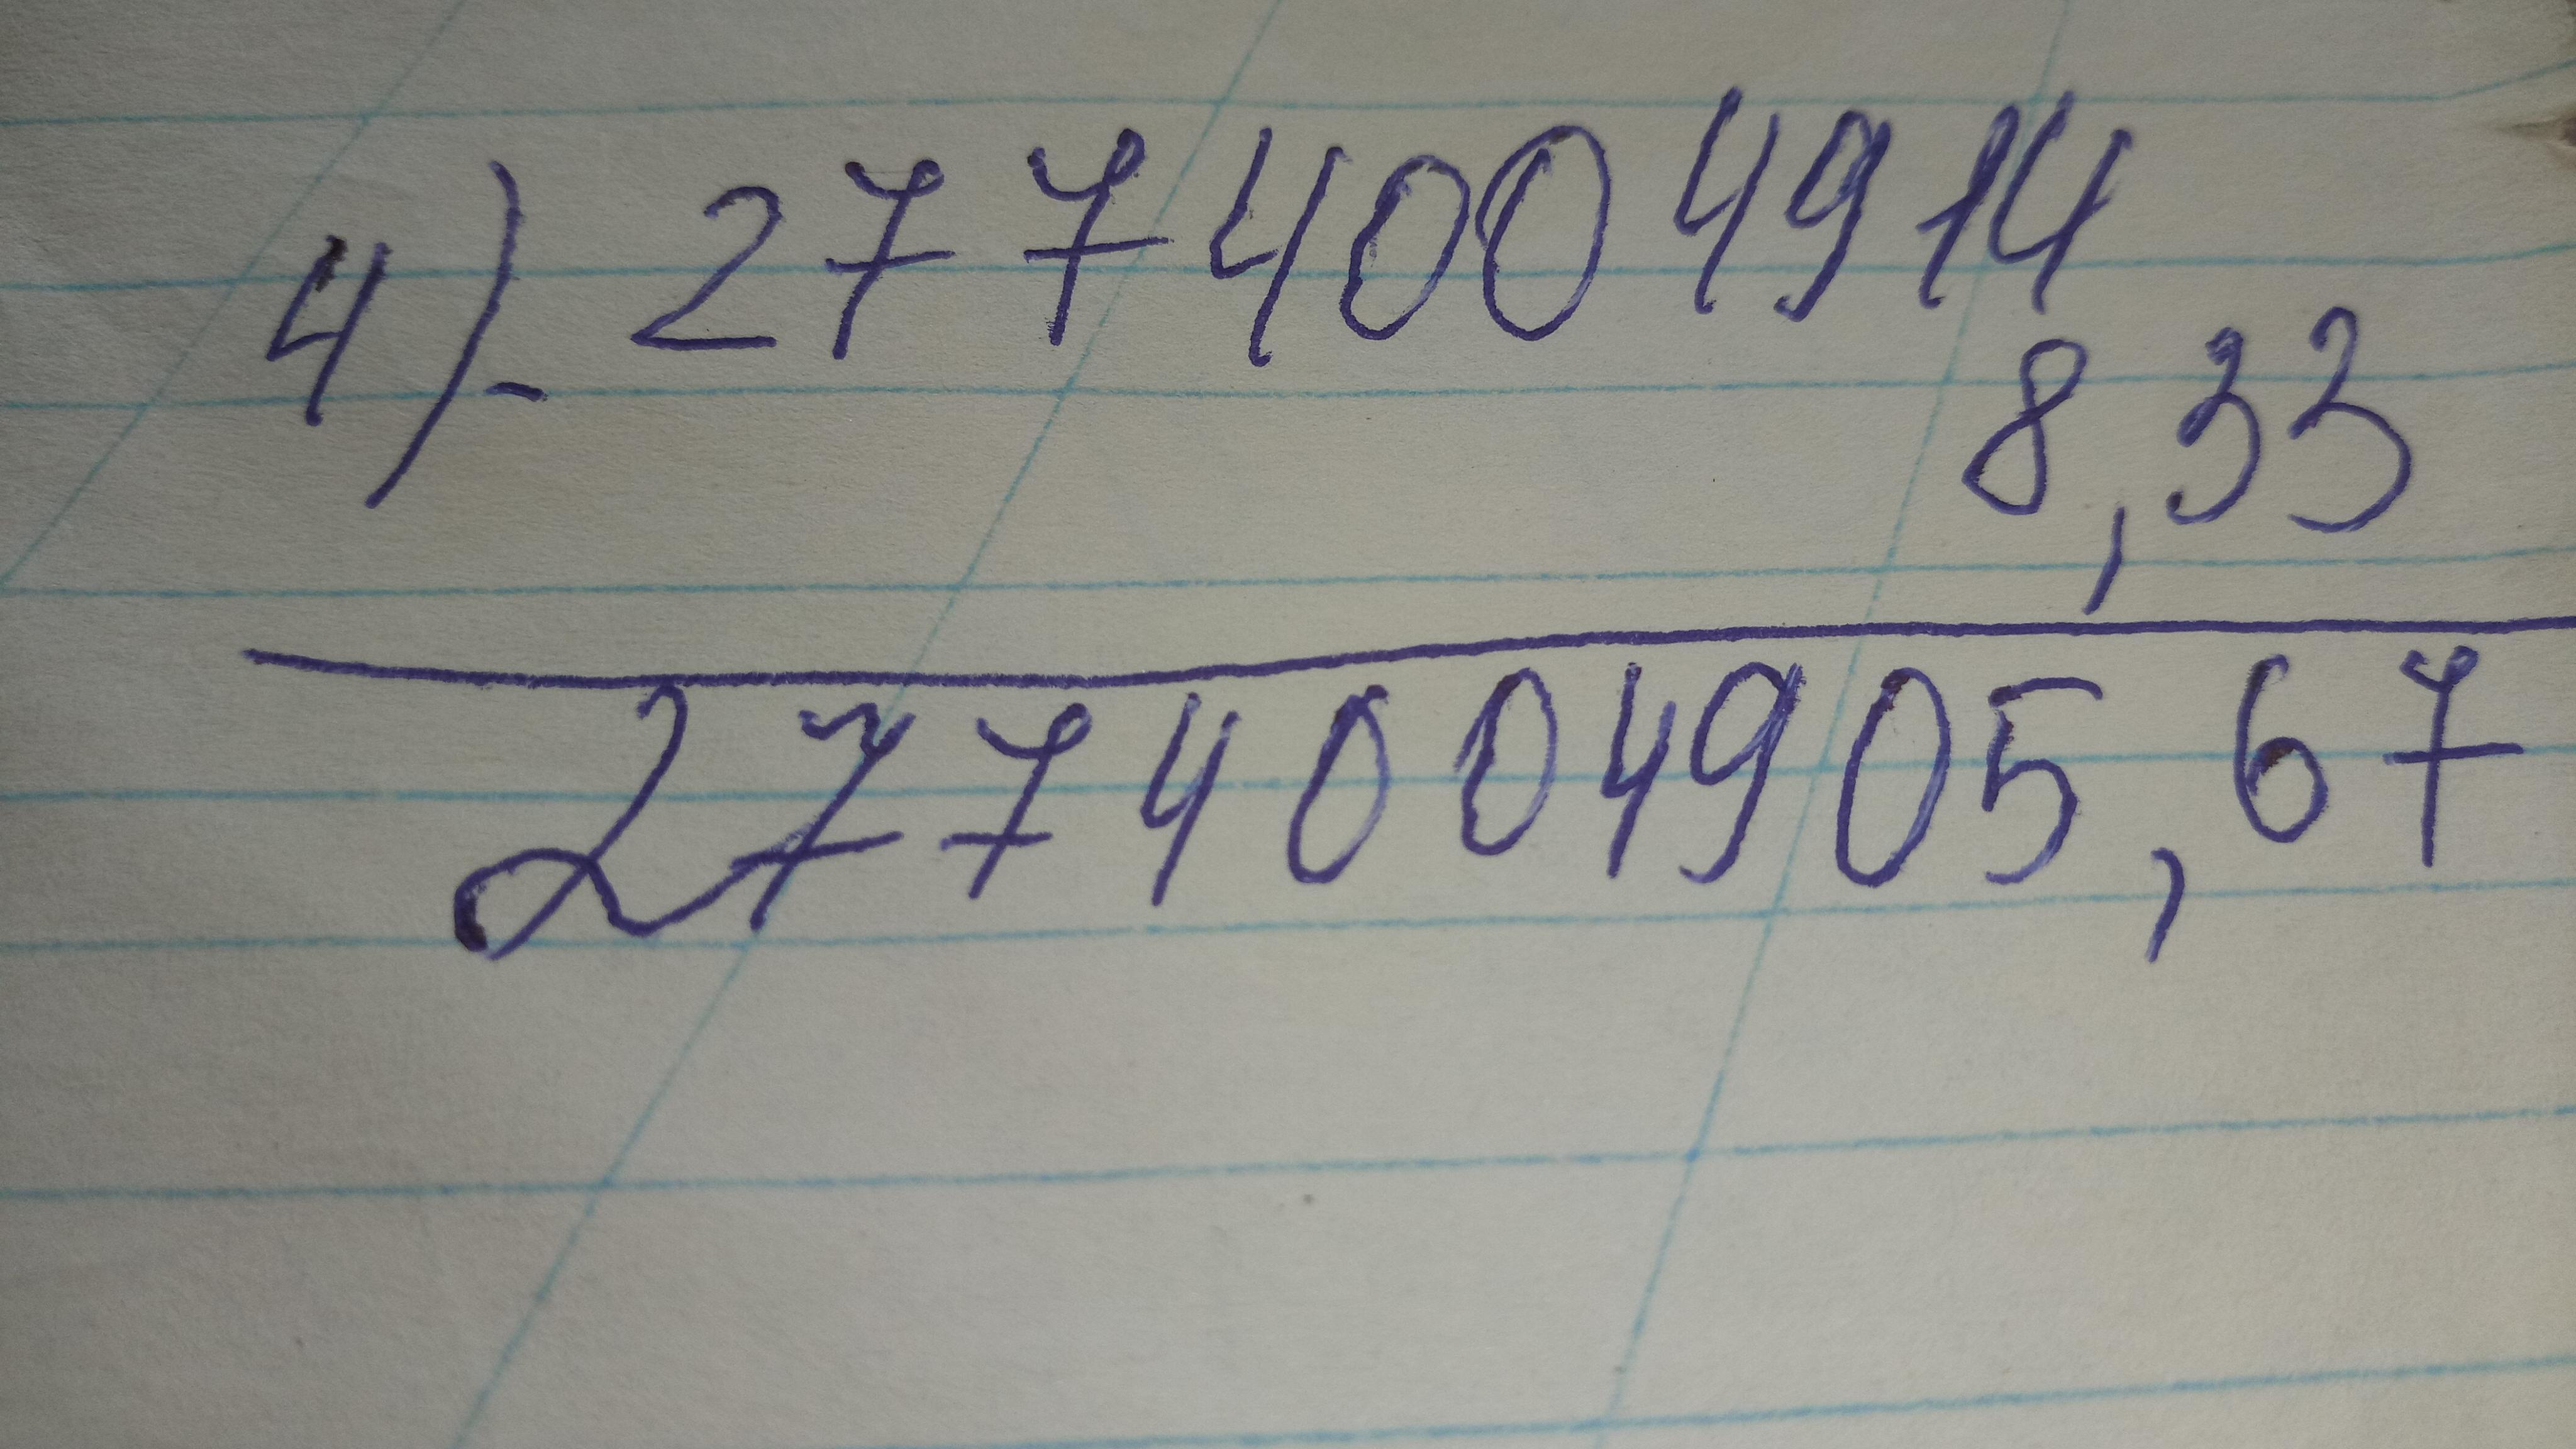 4) - 2774004914
8,33
2774004905,67